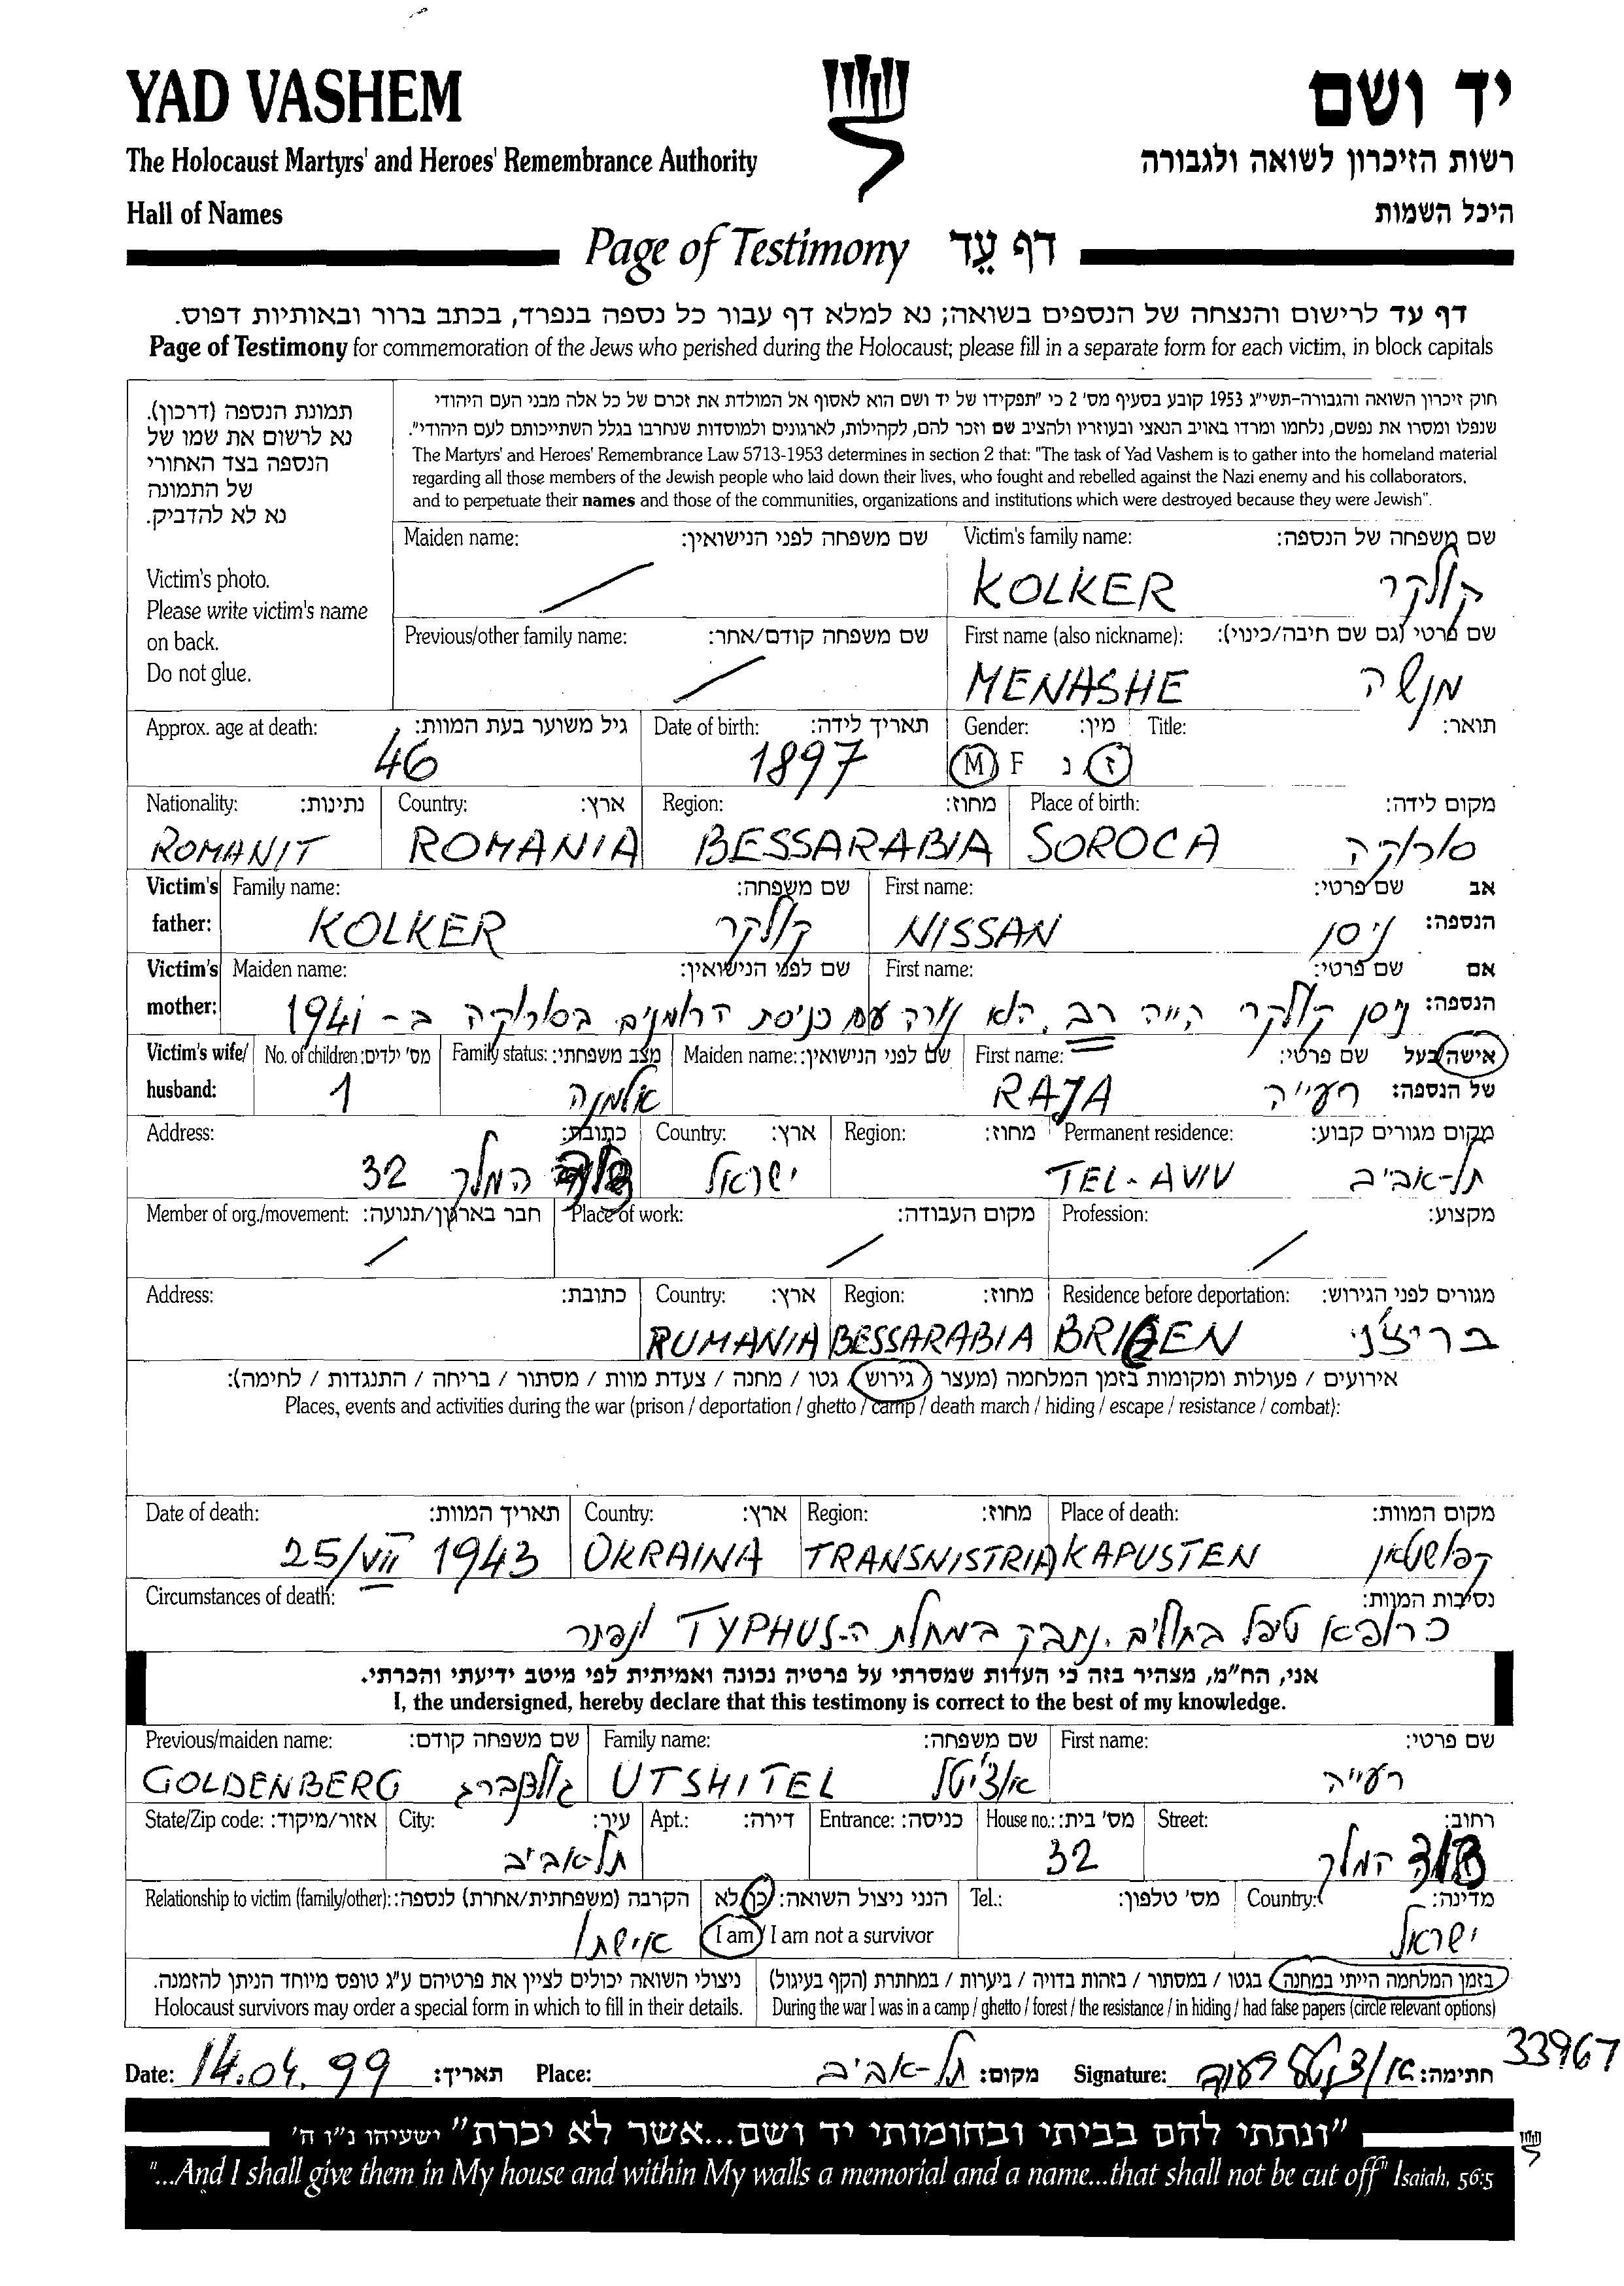 YAD VASHEM
יד ושם
The Holocaust Martyrs' and Heroes' Remembrance Authority
רשות הזיכרון לשואה ולגבורה
Hall of Names
היכל השמות
Page of Testimony דף עֵד
דף עד לרישום והנצחה של הנספים בשואה; נא למלא דף עבור כל נספה בנפרד, בכתב ברור ובאותיות דפוס.
Page of Testimony for commemoration of the Jews who perished during the Holocaust; please fill in a separate form for each victim, in block capitals
תמונת הנספה (דרכון).
נא לרשום את שמו של
הנספה בצד האחורי
של התמונה
נא לא להדביק.
Victim's photo.
Please write victim's name
on back.
Do not glue.
חוק זיכרון השואה והגבורה-תשי"ג 1953 קובע בסעיף מס' 2 כי "תפקידו של יד ושם הוא לאסוף אל המולדת את זכרם של כל אלה מבני העם היהודי
שנפלו ומסרו את נפשם, נלחמו ומרדו באויב הנאצי ובעוזריו ולהציב שם וזכר להם, לקהילות, לארגונים ולמוסדות שנחרבו בגלל השתייכותם לעם היהודי".
The Martyrs' and Heroes' Remembrance Law 5713-1953 determines in section 2 that: "The task of Yad Vashem is to gather into the homeland material
regarding all those members of the Jewish people who laid down their lives, who fought and rebelled against the Nazi enemy and his collaborators,
and to perpetuate their names and those of the communities, organizations and institutions which were destroyed because they were Jewish".
Maiden name: שם משפחה לפני הנישואין: Victim's family name: שם משפחה של הנספה:
/ KOLKER קולקר
Previous/other family name: שם משפחה קודם/אחר: First name (also nickname): שם פרטי (גם שם חיבה/כינוי):
/ MENASHE מנשה
Approx. age at death: גיל משוער בעת המוות: Date of birth: תאריך לידה: Gender: מין: Title: תואר:
46 1897 M F נ ז
Nationality: נתינות: Country: ארץ: Region: מחוז: Place of birth: מקום לידה:
ROMANIT ROMANIA BESSARABIA SOROCA סורוקה
Victim's father: Family name: שם משפחה: First name: שם פרטי: אב הנספה:
KOLKER קולקר NISSAN ניסן
Victim's mother: Maiden name: שם לפני הנישואין: First name: שם פרטי: אם הנספה:
ניסן קולקר היה רב. הוא נורה עם כניסת הרומנים בסורוקה ב - 1941
Victim's wife/ husband: No. of children: מס' ילדים: Family status: מצב משפחתי: Maiden name: שם לפני הנישואין: First name: שם פרטי: אישה/בעל של הנספה:
1 אלמנה RAJA רעייה
Address: כתובת: Country: ארץ: Region: מחוז: Permanent residence: מקום מגורים קבוע:
דוד המלך 32 ישראל TEL-AVIV תל-אביב
Member of org./movement: חבר בארגון/תנועה: Place of work: מקום העבודה: Profession: מקצוע:
/ / /
Address: כתובת: Country: ארץ: Region: מחוז: Residence before deportation: מגורים לפני הגירוש:
RUMANIA BESSARABIA BRICEN בריצ'ני
אירועים / פעולות ומקומות בזמן המלחמה (מעצר / גירוש / גטו / מחנה / צעדת מוות / מסתור / בריחה / התנגדות / לחימה):
Places, events and activities during the war (prison / deportation / ghetto / camp / death march / hiding / escape / resistance / combat):
Date of death: תאריך המוות: Country: ארץ: Region: מחוז: Place of death: מקום המוות:
25/VII 1943 OKRAINA TRANSNISTRIA KAPUSTEN קפושטאן
Circumstances of death: נסיבות המוות:
כרופא טיפל בחולים. נתבק במחלת ה-TYPHUS ונפטר
אני, הח"מ, מצהיר בזה כי העדות שמסרתי על פרטיה נכונה ואמיתית לפי מיטב ידיעתי והכרתי.
I, the undersigned, hereby declare that this testimony is correct to the best of my knowledge.
Previous/maiden name: שם משפחה קודם: Family name: שם משפחה: First name: שם פרטי:
GOLDENBERG גולדנברג UTSHITEL אוצ'יטל רעייה
State/Zip code: אזור/מיקוד: City: עיר: Apt.: דירה: Entrance: כניסה: House no.: מס' בית: Street: רחוב:
תל-אביב 32 דוד המלך
Relationship to victim (family/other): הקרבה (משפחתית/אחרת) לנספה: הנני ניצול השואה: כן/לא Tel.: מס' טלפון: Country: מדינה:
אישתו I am / I am not a survivor ישראל
ניצולי השואה יכולים לציין את פרטיהם ע"ג טופס מיוחד הניתן להזמנה. בזמן המלחמה הייתי במחנה / בגטו / במסתור / בזהות בדויה / ביערות / במחתרת (הקף בעיגול)
Holocaust survivors may order a special form in which to fill in their details. During the war I was in a camp / ghetto / forest / the resistance / in hiding / had false papers (circle relevant options)
33967
Date: 14.04.99 תאריך: Place: תל-אביב מקום: Signature: אוצ'יטל רעיה חתימה:
"ונתתי להם בביתי ובחומותי יד ושם...אשר לא יכרת" ישעיהו נ"ו ה'
"...And I shall give them in My house and within My walls a memorial and a name...that shall not be cut off" Isaiah, 56:5